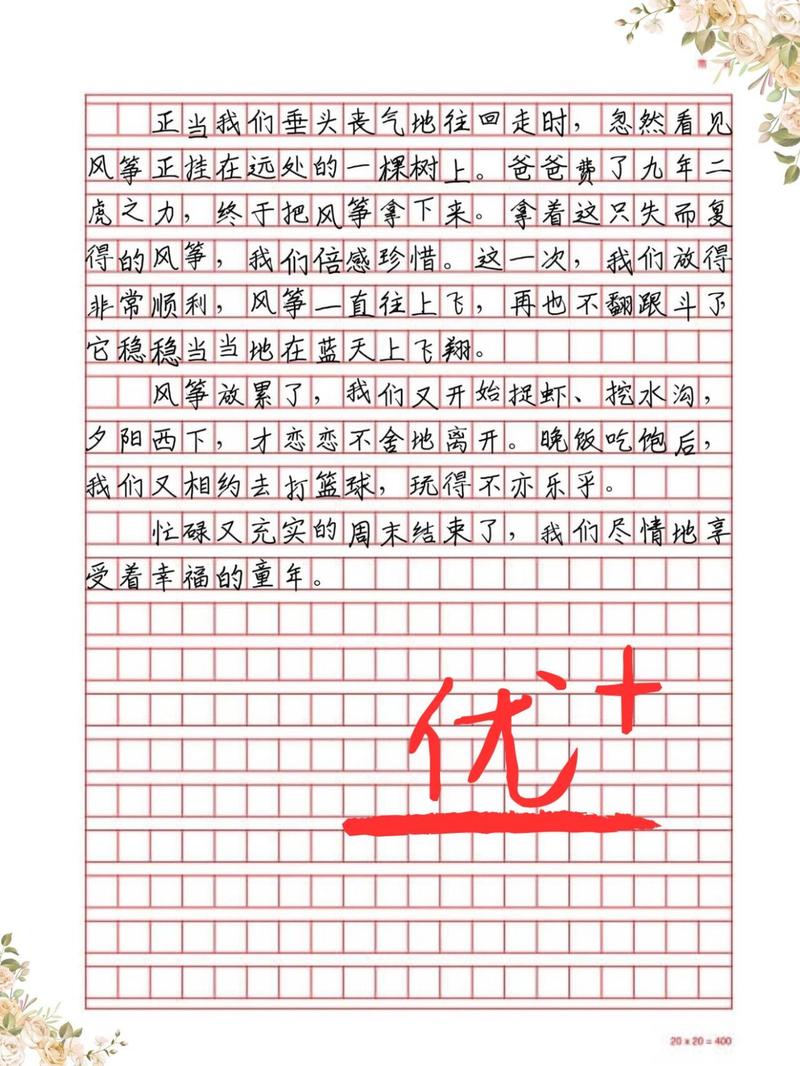 正当我们垂头丧气地往回走时，忽然看见
风筝正挂在远处的一棵树上。爸爸费了九年二
虎之力，终于把风筝拿下来。拿着这只失而复
得的风筝，我们倍感珍惜。这一次，我们放得
非常顺利，风筝一直往上飞，再也不翻跟斗了
它稳稳当当地在蓝天上飞翔。
风筝放累了，我们又开始捉虾、挖水沟，
夕阳西下，才恋恋不舍地离开。晚饭吃饱后，
我们又相约去打篮球，玩得不亦乐乎。
忙碌又充实的周末结束了，我们尽情地享
受着幸福的童年。
优+
20 x 20 = 400